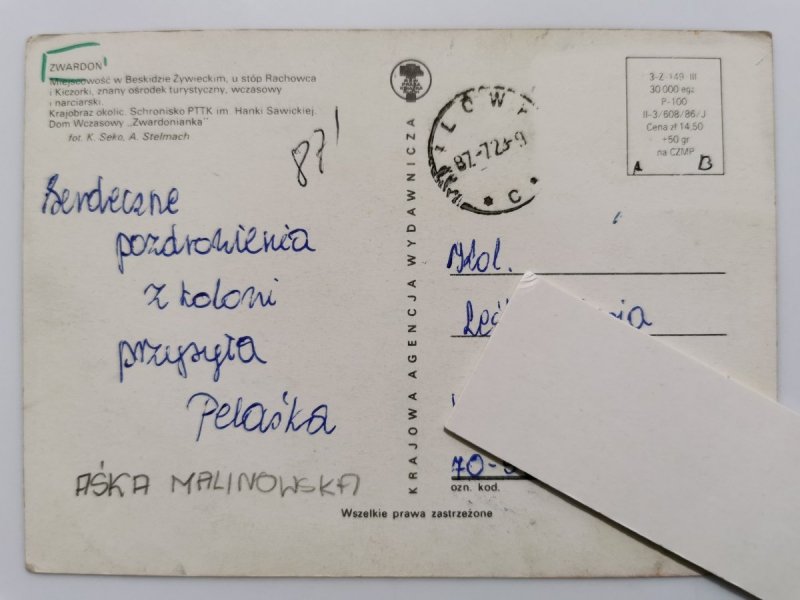 ZWARDOŃ
Miejscowość w Beskidzie Żywieckim, u stóp Rachowca
i Kiczorki, znany ośrodek turystyczny, wczasowy
i narciarski.
Krajobraz okolic. Schronisko PTTK im. Hanki Sawickiej.
Dom Wczasowy „Zwardonianka"
fot. K. Seko, A. Stelmach
87'
Serdeczne
pozdrowienia
z koloni
przysyła
Pelaśka
AŚKA MALINOWSKA
KRAJOWA AGENCJA WYDAWNICZA
87.-7.23-9
C
3-Z 149 III
30 000 egz.
P-100
II-3/608/86/J
Cena zł 14,50
+50 gr
na CZMP
A B
Kol.
70-
ozn. kod.
Wszelkie prawa zastrzeżone